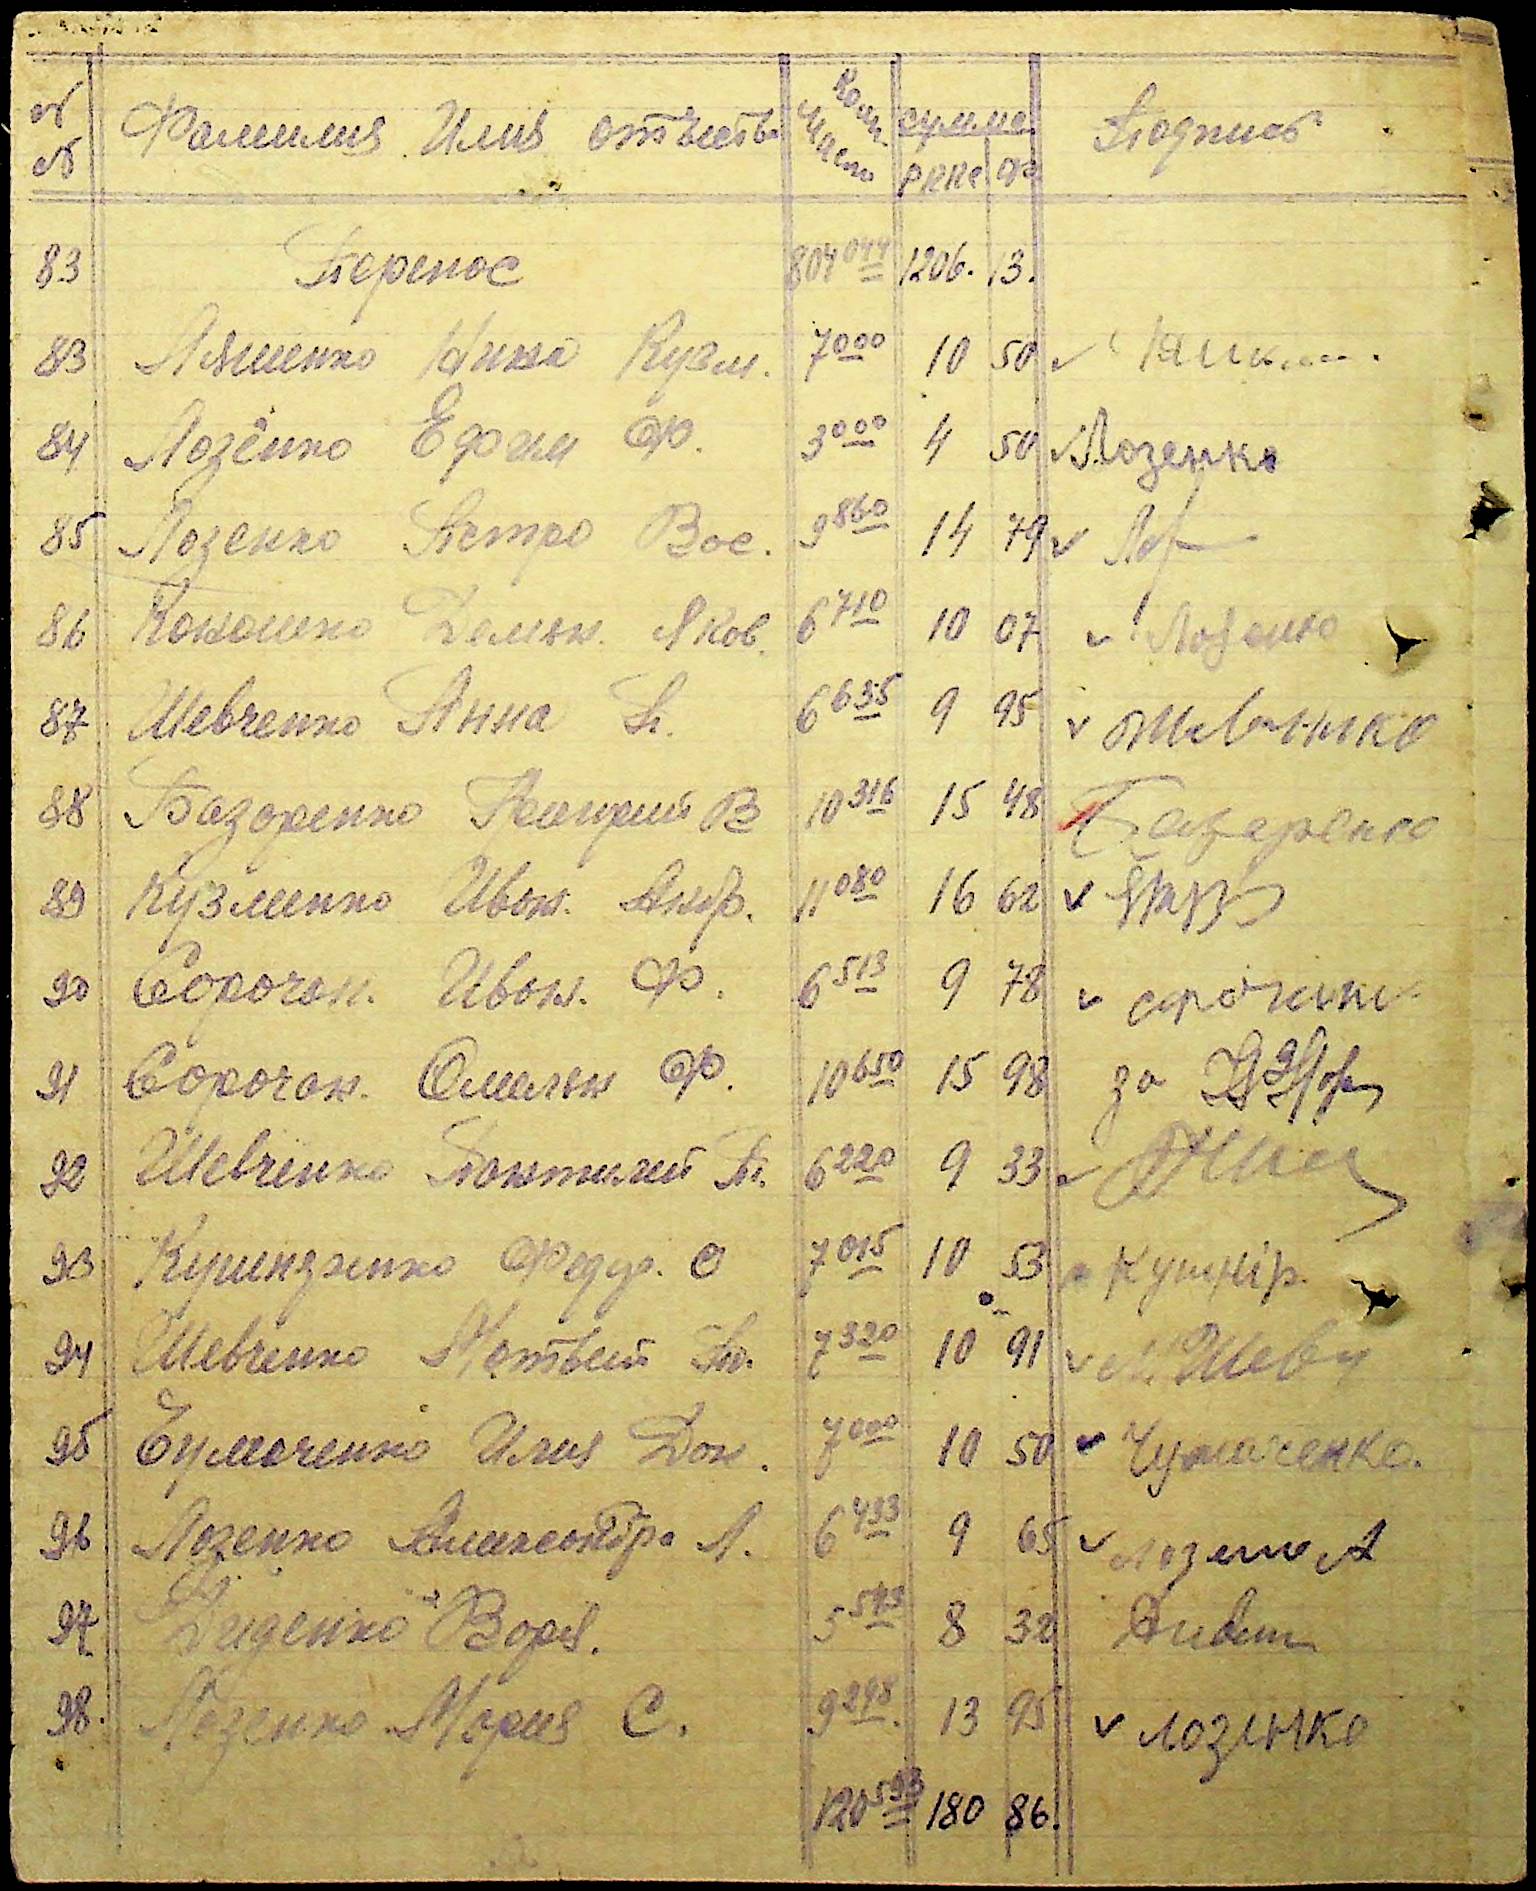 № Фамилия Имя отчеств. Колич. чисто сумма Подпись
№ РККС ПФ
83 Перенос 804 044 1206. 13.
83 Ляшенко Нина Кузм. 7 000 10 50
84 Лозенко Ефим Ф. 3 000 4 50 Лозенко
85 Лозенко Петро Вас. 9 860 14 79 Лоз
86 Демян. Яков. 6 710 10 07 Лозенко
87 Шевченко Анна П. 6 635 9 95 Шевченко
88 Базаренко В 10 316 15 48 Базаренко
89 Кузменко Иван. Андр. 11 080 16 62
90 Сорочан. Иван. Ф. 6 513 9 78 сорочан
91 Сорочан. Емельян Ф. 10 650 15 98 за
92 Шевченко Пантилей П. 6 220 9 33
93 Федор. С 7 015 10 53 Кушнір.
94 Шевченко Матвей Гр. 7 320 10 91 М Шевч
95 Чумаченко Илия Дан. 7 000 10 50 Чумаченко.
96 Лозенко Александра Л. 6 433 9 65 Лозенко А
97 Диденко Варя. 5 543 8 32
98. Лозенко Мария С. 9 298. 13 95 лозенко
120 593 180 86.